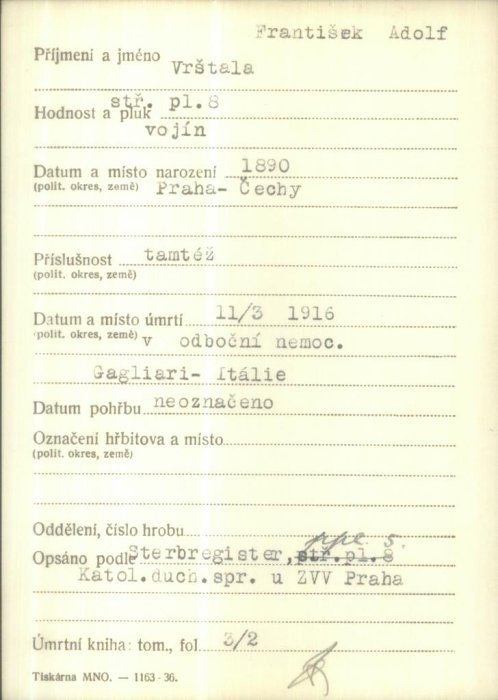 František Adolf
Příjmení a jméno Vrštala
stř. pl.8
Hodnost a pluk
vojín
Datum a místo narození 1890
(polit. okres, země) Praha- Čechy
Příslušnost tamtéž
(polit. okres, země)
Datum a místo úmrtí 11/3 1916
(polit. okres, země) v odboční nemoc.
Gagliari- Itálie
Datum pohřbu neoznačeno
Označení hřbitova a místo
(polit. okres, země)
Oddělení, číslo hrobu
5.
Opsáno podle Sterbregister, stř.pl.8
Katol.duch.spr. u ZVV Praha
Úmrtní kniha: tom., fol. 3/2
Tiskárna MNO. — 1163-36.